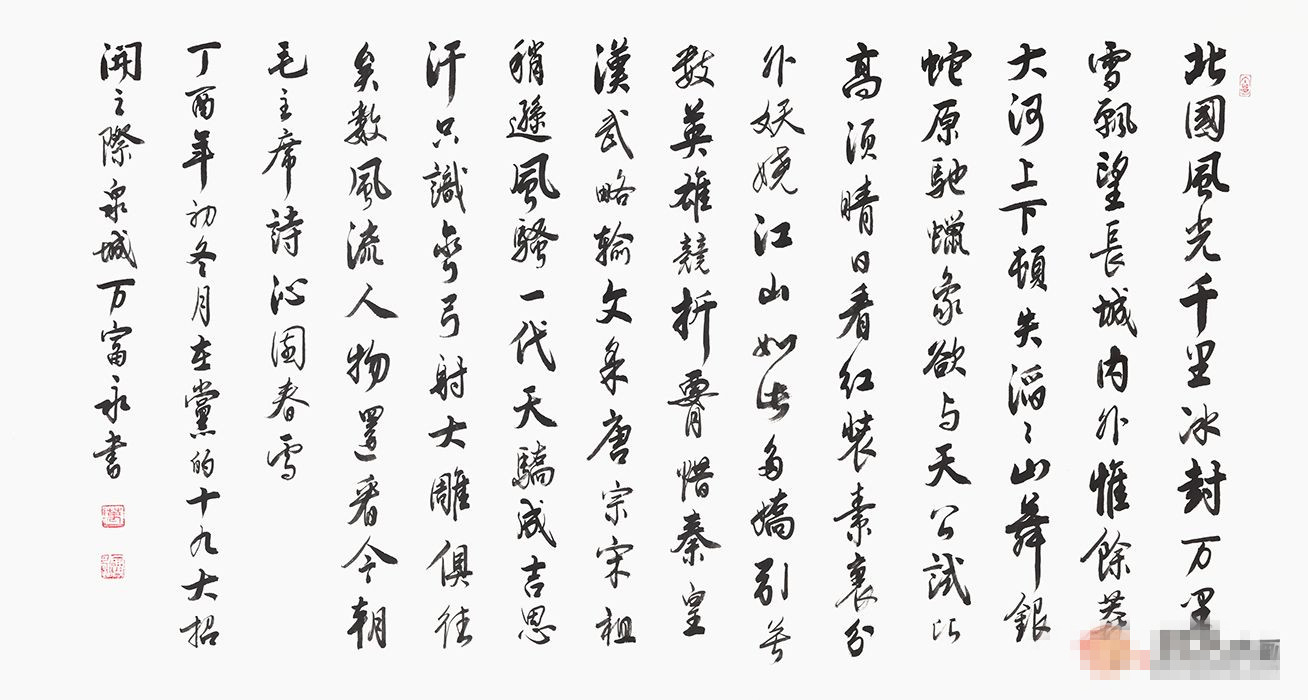 北國風光千里冰封万里
雪飄望長城内外惟餘莽
大河上下頓失滔〻山舞銀
蛇原馳蠟象欲与天公試比
高須晴日看红裝素裹分
外妖嬈江山如此多嬌引無
数英雄競折腰惜秦皇
漢武略輸文采唐宗宋祖
稍遜風騷一代天驕成吉思
汗只識彎弓射大雕俱往
矣數風流人物還看今朝
毛主席詩沁園春雪
丁酉年初冬月在黨的十九大招
開之際泉城万富永書